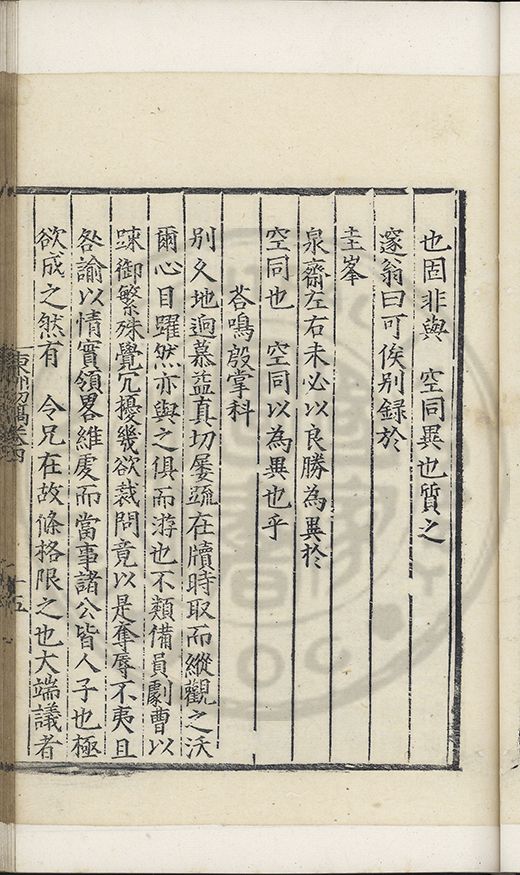 也固非與　空同異也質之
邃翁曰可俟别録於
圭峯
泉齋左右未必以良勝為異於
空同也　空同以為異也乎
荅鳴殷掌科
别久地逈慕益真切屡䟽在牘時取而縱觀之沃
爾心目躍然亦與之俱而游也不類備員劇曹以
踈御繁殊覺冗擾幾欲裁問竟以是奪辱不夷且
咎諭以情實領畧維處而當事諸公皆人子也極
欲成之然有　令兄在故條格限之也大端議者
東洲初稿卷十四
十五